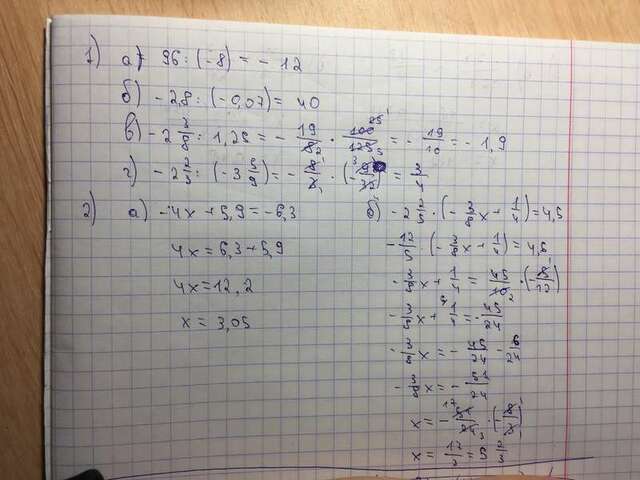 1) а) 96 : (-8) = -12
б) -2,8 : (-0,07) = 40
в) -2 3/8 : 1,25 = - 19/8 · 100/125 = - 19/10 = -1,9
г) -2 2/3 : (-3 5/9) = - 8/3 · (- 9/32) = 3/4
2) а) -4x + 5,9 = -6,3
4x = 6,3 + 5,9
4x = 12,2
x = 3,05
б) -2 2/5 · (- 3/8 x + 1/4) = 4,5
- 12/5 (- 3/8 x + 1/4) = 4,5
- 3/8 x + 1/4 = 45/10 · (- 5/12)
- 3/8 x + 1/4 = - 45/24
- 3/8 x = - 45/24 - 6/24
- 3/8 x = - 51/24
x = - 51/24 · (- 8/3)
x = 17/3 = 5 2/3